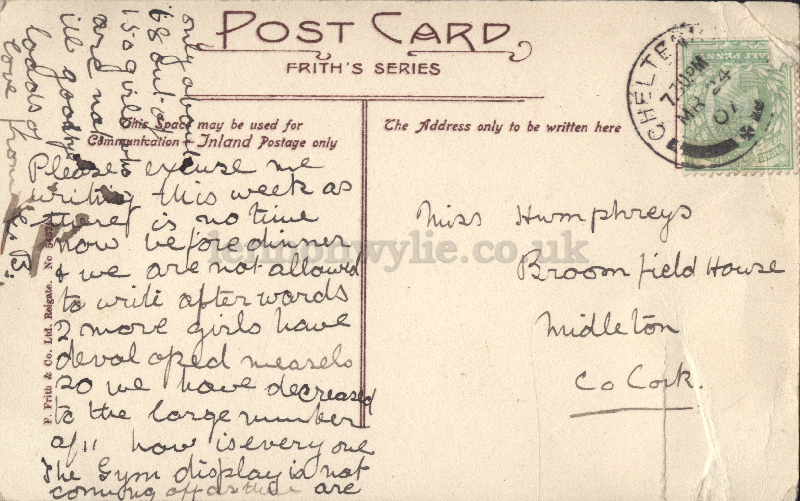 POST CARD
FRITH'S SERIES
This Space may be used for
Communication Inland Postage only
The Address only to be written here
CHELTEN
7.30PM
MR 24
07
HALF PENNY
Miss Humphreys
Broomfield House
Midleton
Co Cork.
Please excuse me
writing this week as
there is no time
now before dinner
& we are not allowed
to write afterwards
2 more girls have
devaloped measels
so we have decreased
to the large number
of 11 how is every one
The Gym display is not
coming off as there are
only about
68 out of
150 girls who
are not
ill goodbye
loads of
love from
B.
F. Frith & Co. Ltd. Reigate. No
lennonwylie.co.uk